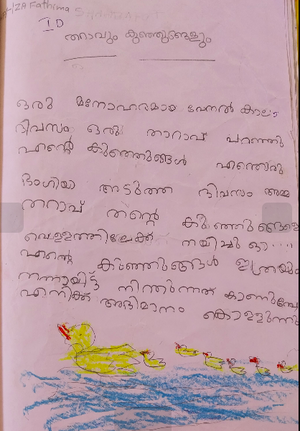 Fathima
I D
താറാവും കുഞ്ഞുങ്ങളും
ഒരു മനോഹരമായ വേനൽ കാലം
ദിവസം ഒരു താറാവ് പറഞ്ഞു
എന്റെ കുഞ്ഞുങ്ങൾ എന്തൊരു
ഭംഗിയാ അടുത്ത ദിവസം അമ്മ
താറാവ് തന്റെ കുഞ്ഞുങ്ങളെ
വെള്ളത്തിലേക്ക് നയിച്ചു ഓ....
എന്റെ കുഞ്ഞുങ്ങൾ ഇത്രയും
നന്നായിട്ട് നീന്തുന്നത് കാണുമ്പോ
എനിക്ക് അഭിമാനം കൊള്ളുന്നു